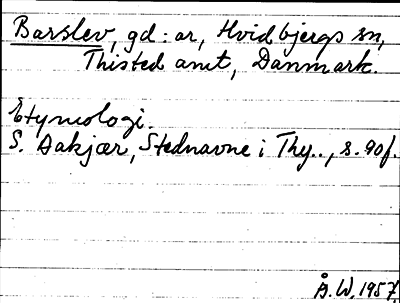 Barslev, gd:ar, Hvidbjergs sn,
Thisted amt, Danmark.
Etymologi.
S. Aakjær, Stednavne i Thy.., s. 90f.
Å.W. 1957.